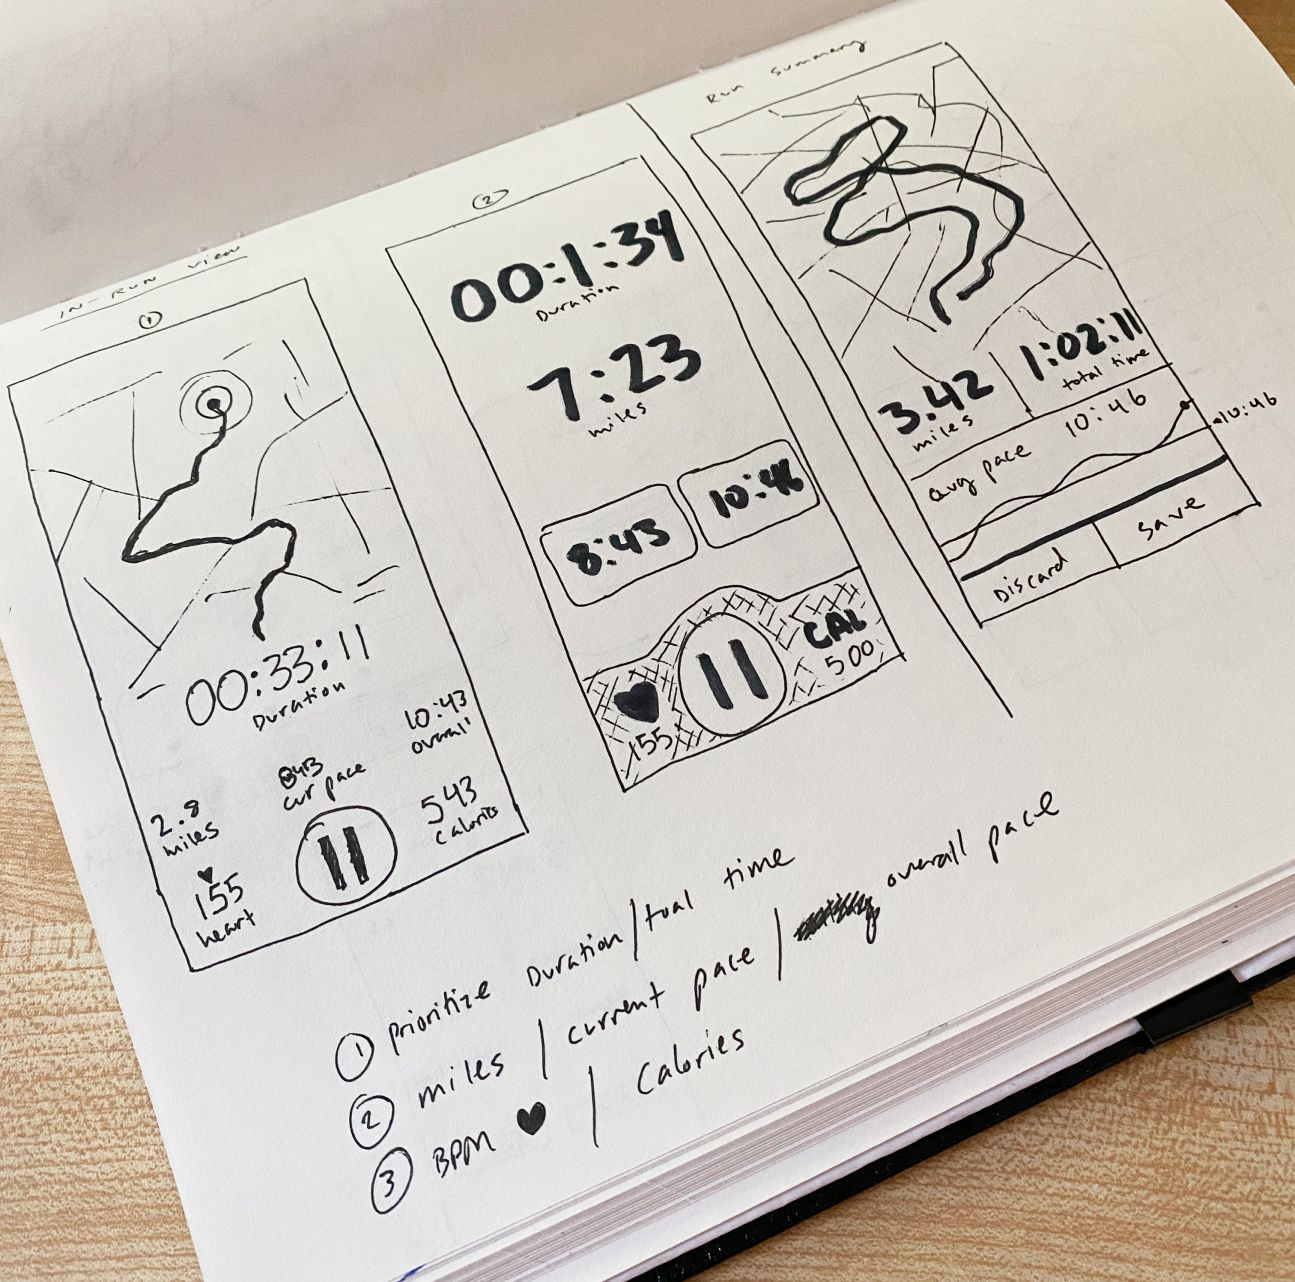 IN-RUN view
1
00:33:11
Duration
10:43
overall
843
cur pace
2.8
miles
543
Calories
155
heart
2
00:1:34
Duration
7:23
miles
8:43
10:46
CAL
500
155
Run Summary
3.42
miles
1:02:11
total time
avg pace 10:46
10:46
Discard
Save
1 Prioritize Duration/toal time
2 miles / current pace / overall pace
3 BPM ♥ / Calories